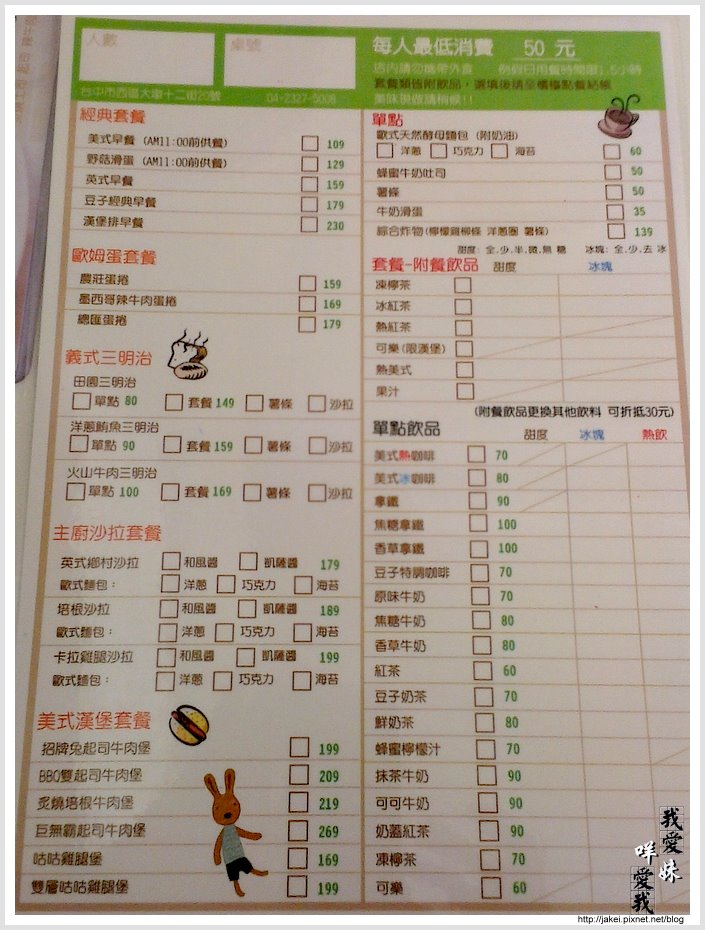 人數
桌號
每人最低消費 50 元
店內請勿攜帶外食 例假日用餐時間限1.5小時
套餐類皆附飲品，選填後請至櫃檯點餐結帳
美味現做請稍候!!
台中市西區大墩十二街20號 04-2327-5008
經典套餐
美式早餐 (AM11:00前供餐) 109
野菇滑蛋 (AM11:00前供餐) 129
英式早餐 159
豆子經典早餐 179
漢堡排早餐 230
歐姆蛋套餐
農莊蛋捲 159
墨西哥辣牛肉蛋捲 169
總匯蛋捲 179
義式三明治
田園三明治
單點 80 套餐 149 薯條 沙拉
洋蔥鮪魚三明治
單點 90 套餐 159 薯條 沙拉
火山牛肉三明治
單點 100 套餐 169 薯條 沙拉
主廚沙拉套餐
英式鄉村沙拉 和風醬 凱薩醬 179
歐式麵包： 洋蔥 巧克力 海苔
培根沙拉 和風醬 凱薩醬 189
歐式麵包： 洋蔥 巧克力 海苔
卡拉雞腿沙拉 和風醬 凱薩醬 199
歐式麵包： 洋蔥 巧克力 海苔
美式漢堡套餐
招牌兔起司牛肉堡 199
BBQ雙起司牛肉堡 209
炙燒培根牛肉堡 219
巨無霸起司牛肉堡 269
咕咕雞腿堡 169
雙層咕咕雞腿堡 199
單點
歐式天然酵母麵包 (附奶油)
洋蔥 巧克力 海苔 60
蜂蜜牛奶吐司 50
薯條 50
牛奶滑蛋 35
綜合炸物(檸檬雞柳條 洋蔥圈 薯條) 139
甜度: 全.少.半.微.無 糖 冰塊: 全.少.去 冰
套餐-附餐飲品 甜度 冰塊
凍檸茶
冰紅茶
熱紅茶
可樂(限漢堡)
熱美式
果汁
(附餐飲品更換其他飲料 可折抵30元)
單點飲品 甜度 冰塊 熱飲
美式熱咖啡 70
美式冰咖啡 80
拿鐵 90
焦糖拿鐵 100
香草拿鐵 100
豆子特調咖啡 70
原味牛奶 70
焦糖牛奶 80
香草牛奶 80
紅茶 60
豆子奶茶 70
鮮奶茶 80
蜂蜜檸檬汁 70
抹茶牛奶 90
可可牛奶 90
奶蓋紅茶 90
凍檸茶 70
可樂 60
我愛妹
咩愛我
http://jakei.pixnet.net/blog